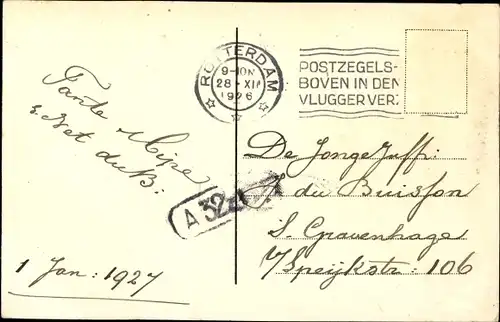 ROTTERDAM
9-10N
28·XII
1926
POSTZEGELS-
BOVEN IN DEN
VLUGGER VER:
Tante Mipe
& Net duB:
1 Jan: 1927
A 32
De Jongejuffr:
du Buisson
S. Gravenhage
V/Speijkstr: 106